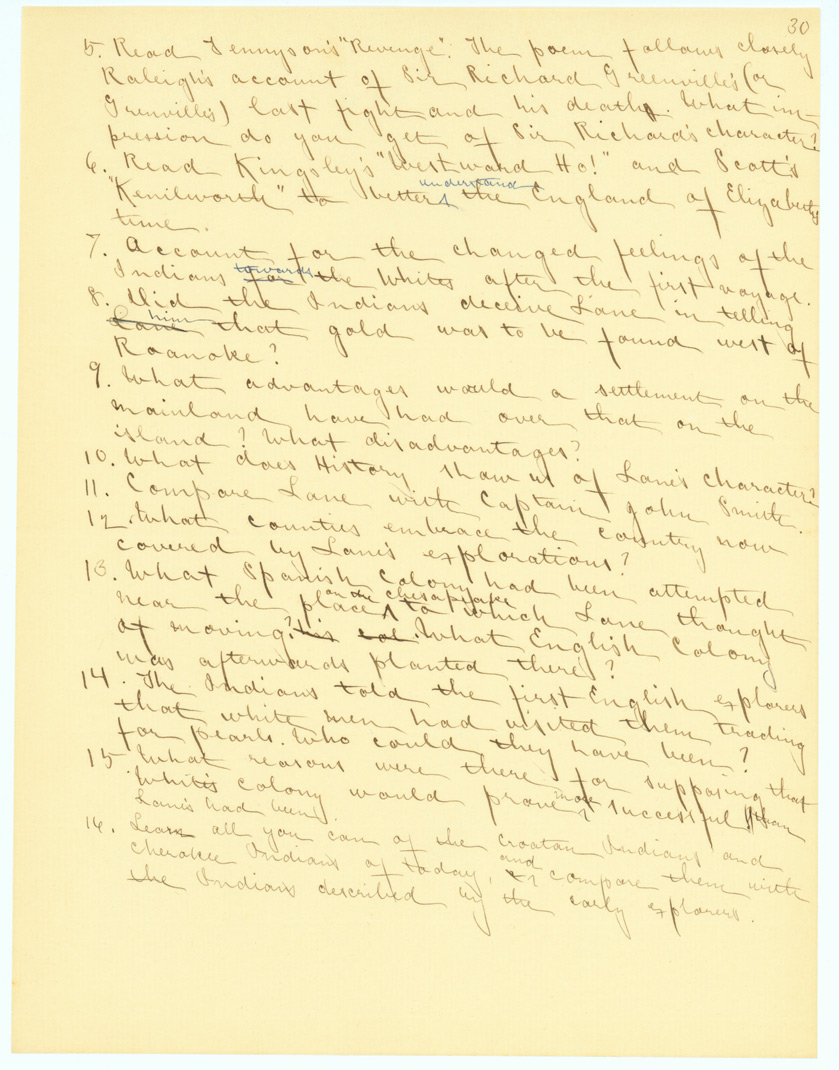 30
5. Read Tennyson's "Revenge". The poem follows closely
Raleigh's account of Sir Richard Greenville's (or
Grenville's) last fight and his death. What im-
pression do you get of Sir Richard's character?
6. Read Kingsley's "Westward Ho!" and Scott's
understand
"Kenilworth" to better the England of Elizabeth's
time.
7. Account for the changed feelings of the
towards
Indians for the Whites after the first voyage.
8. Did the Indians deceive Lane in telling
him
Lane that gold was to be found west of
Roanoke?
9. What advantages would a settlement on the
mainland have had over that on the
island? What disadvantages?
10. What does History show us of Lane's character?
11. Compare Lane with Captain John Smith.
12. What counties embrace the country now
covered by Lane's explorations?
13. What Spanish Colony had been attempted
on the Chesapeake
near the place to which Lane thought
of moving? his col. What English Colony
was afterwards planted there?
14. The Indians told the first English explorers
that white men had visited them trading
for pearls. Who could they have been?
15. What reasons were there for supposing that
White's colony would prove more successful than
Lane's had been?
16. Learn all you can of the Croatan Indians and
and
Cherokee Indians of today, compare them with
the Indians described by the early explorers.